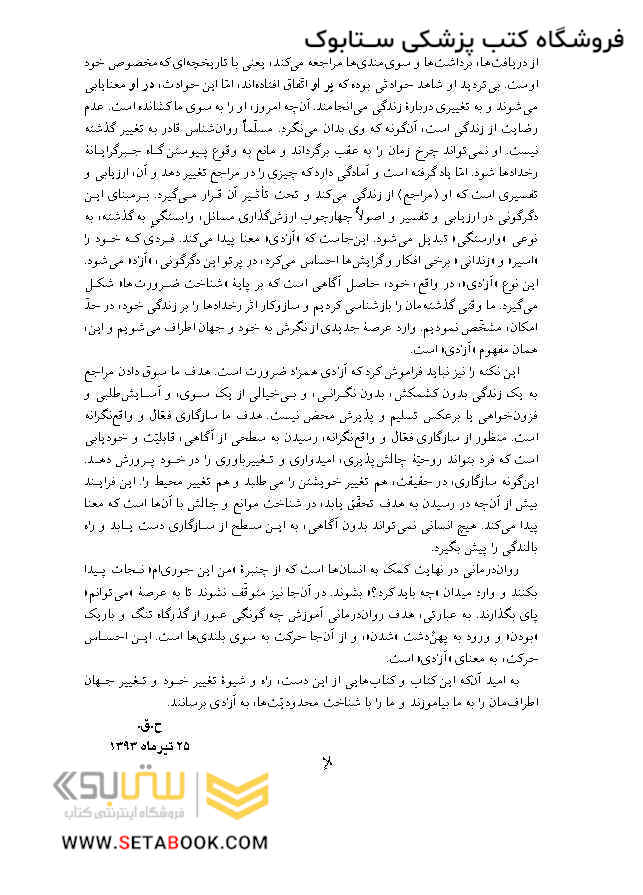 فروشگاه کتب پزشکی ستابوک
از دریافت‌ها، برداشت‌ها و سوی‌مندی‌ها مراجعه می‌کند، یعنی با تاریخچه‌ای که مخصوص خود
اوست. بی‌تردید او شاهد حوادثی بوده که بر او اتّفاق افتاده‌اند، امّا این حوادث، در او معنایابی
می‌شوند و به تغییری دربارهٔ زندگی می‌انجامند. آن‌چه امروز، او را به سوی ما کشانده است. عدم
رضایت از زندگی است، آن‌گونه که وی بدان می‌نگرد. مسلّماً روان‌شناس قادر به تغییر گذشته
نیست. او نمی‌تواند چرخ زمان را به عقب برگرداند و مانع به وقوع پیوستن گاه جبرگرایانهٔ
رخدادها شود. امّا یاد گرفته است و آمادگی دارد که چیزی را در مراجع تغییر دهد و آن، ارزیابی و
تفسیری است که او (مراجع) از زندگی می‌کند و تحت تأثیر آن قرار می‌گیرد. بر مبنای این
دگرگونی در ارزیابی و تفسیر و اصولاً چهارچوب ارزش‌گذاری مسائل، وابستگی به گذشته، به
نوعی «وارستگی» تبدیل می‌شود. این‌جاست که «آزادی» معنا پیدا می‌کند. فردی که خود را
«اسیر» و «زندانی» برخی افکار و گرایش‌ها احساس می‌کرد، در پرتو این دگرگونی، «آزاد» می‌شود.
این نوع «آزادی»، در واقع، خود، حاصل آگاهی است که بر پایهٔ «شناخت ضرورت‌ها» شکل
می‌گیرد. ما وقتی گذشته‌مان را بازشناسی کردیم و سازوکار اثر رخدادها را بر زندگی خود، در حدّ
امکان، مشخّص نمودیم، وارد عرصهٔ جدیدی از نگرش به خود و جهان اطراف می‌شویم و این،
همان مفهوم «آزادی» است.
این نکته را نیز نباید فراموش کرد که آزادی همزاد ضرورت است. هدف ما سوق دادن مراجع
به یک زندگی بدون کشمکش، بدون نگرانی، و بی‌خیالی از یک سوی، و آسایش‌طلبی و
فزون‌خواهی یا برعکس تسلیم و پذیرش محض نیست. هدف ما سازگاری فعّال و واقع‌نگرانه
است. منظور از سازگاری فعّال و واقع‌نگرانه، رسیدن به سطحی از آگاهی، قابلیّت و خودیابی
است که فرد بتواند روحیّهٔ چالش‌پذیری، امیدواری و تغییرباوری را در خود پرورش دهد.
این‌گونه سازگاری، در حقیقت، هم تغییر خویشتن را می‌طلبد و هم تغییر محیط را. این فرایند
بیش از آن‌چه در رسیدن به هدف تحقّق یابد، در شناخت موانع و چالش با آن‌ها است که معنا
پیدا می‌کند. هیچ انسانی نمی‌تواند بدون آگاهی، به این سطح از سازگاری دست یابد و راه
بالندگی را پیش بگیرد.
روان‌درمانی در نهایت کمک به انسان‌ها است که از چنبرهٔ «من این جوری‌ام» نجات پیدا
بکنند و وارد میدان «چه باید کرد؟» بشوند. در آن‌جا نیز متوقّف نشوند تا به عرصهٔ «می‌توانم»
پای بگذارند. به عبارتی، هدف روان‌درمانی آموزش چه گونگی عبور از گذرگاه تنگ و باریک
«بودن» و ورود به پهن‌دشت «شدن»، و از آن‌جا حرکت به سوی بلندی‌ها است. این احساس
حرکت، به معنای «آزادی» است.
به امید آن‌که این کتاب و کتاب‌هایی از این دست، راه و شیوهٔ تغییر خود و تغییر جهان
اطراف‌مان را به ما بیاموزند و ما را با شناخت محدودیّت‌ها، به آزادی برسانند.
ح.ق.
۲۵ تیر ماه ۱۳۹۳
ستابوک
فروشگاه اینترنتی کتاب
WWW.SETABOOK.COM